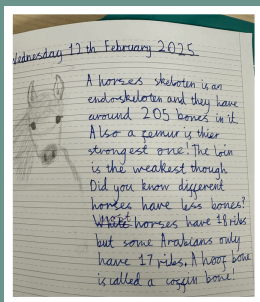 Wednesday 12th February 2025
A horses skeleton is an
endo-skeleton and they have
around 205 bones in it.
Also a femur is thier
strongest one! The loin
is the weakest though
Did you know different
horses have less bones?
Most horses have 18 ribs
but some Arabians only
have 17 ribs, A hoof bone
is called a coffin bone!